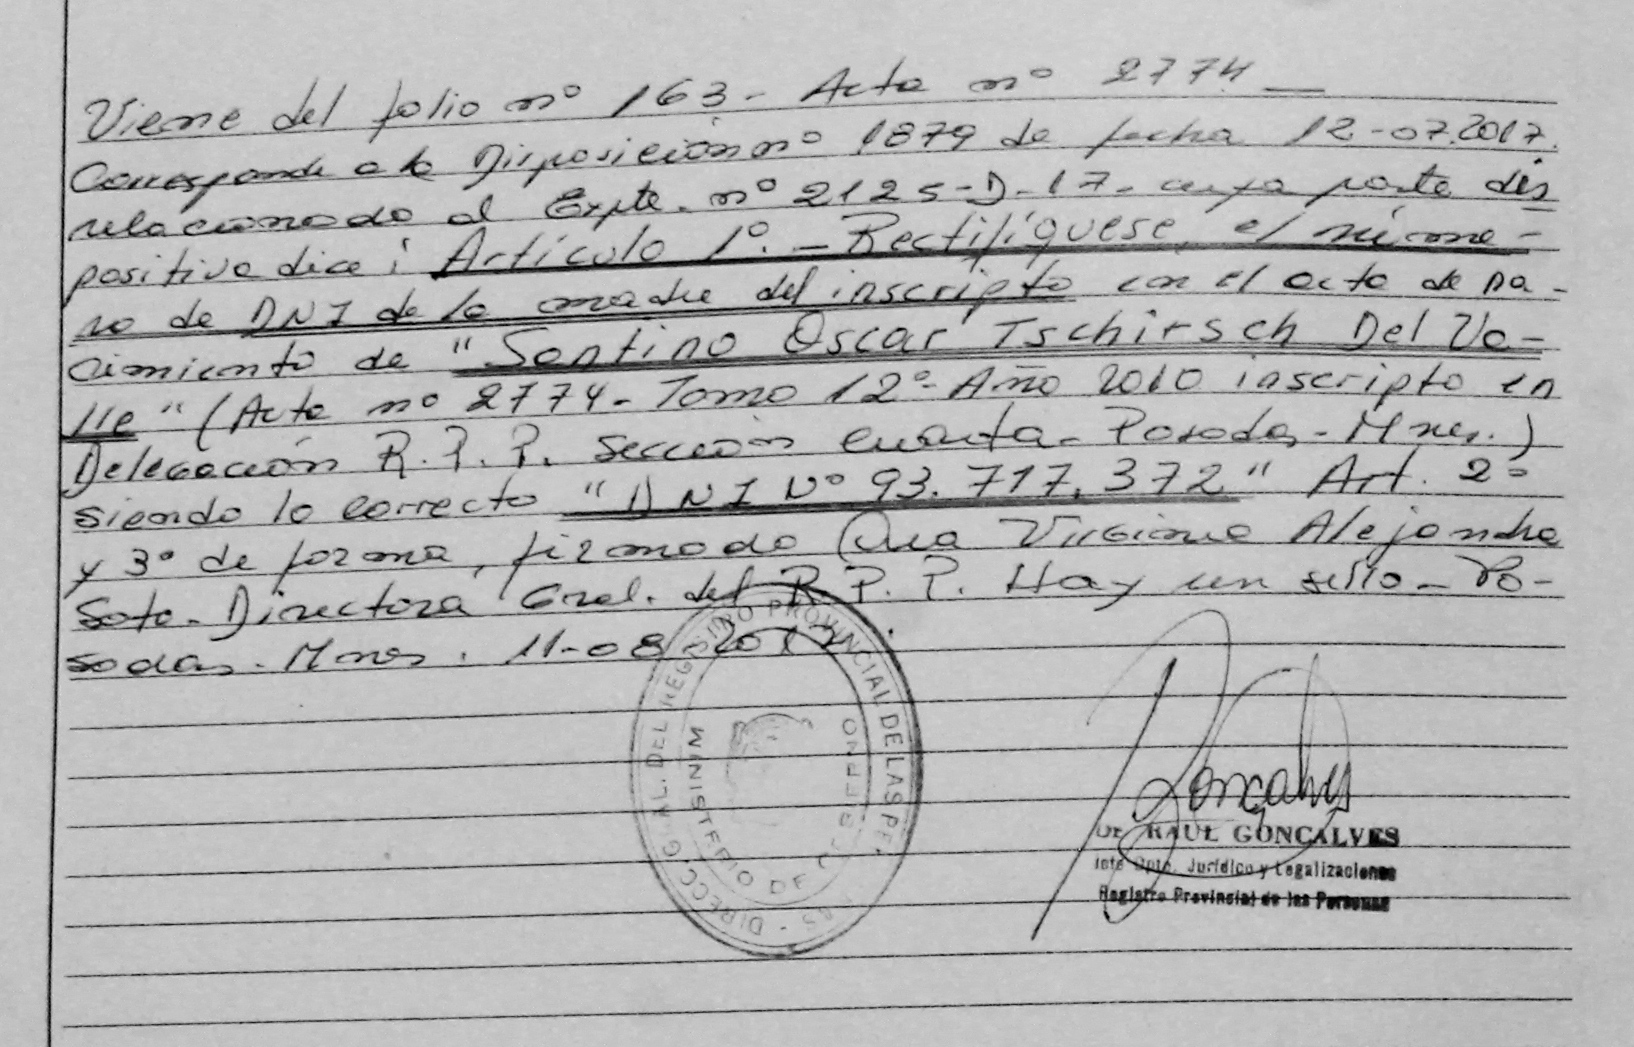 Viene del folio nº 163 - Acta nº 2774 —
Corresponde a la Disposición nº 1879 de fecha 12-07.2017.
relacionado al Expte. nº 2125-D-17- cuya parte dis
positiva dice: Artículo 1º. - Rectifíquese, el núme-
ro de DNI de la madre del inscripto en el acta de na-
cimiento de "Santino Oscar Tschirsch Del Va-
lle" (Acta nº 2774 - Tomo 12º - Año 2010 inscripto en
Delegación R. P. P. Sección Cuarta - Posadas - Mnes.)
siendo lo correcto "DNI Nº 93.717.372" Art. 2º
y 3º de forma, firmado Dra Virginia Alejandra
Soto - Directora Gral. del R. P. P. Hay un sello - Po-
sadas - Mnes. 11-08-2017.
DIRECC. GRAL. DEL REGISTRO PROVINCIAL DE LAS PE
MINISTERIO DE GOBIERNO
Gonçalves
RAUL GONÇALVES
Dpto. Jurídico y Legalizaciones
Registro Provincial de las Personas